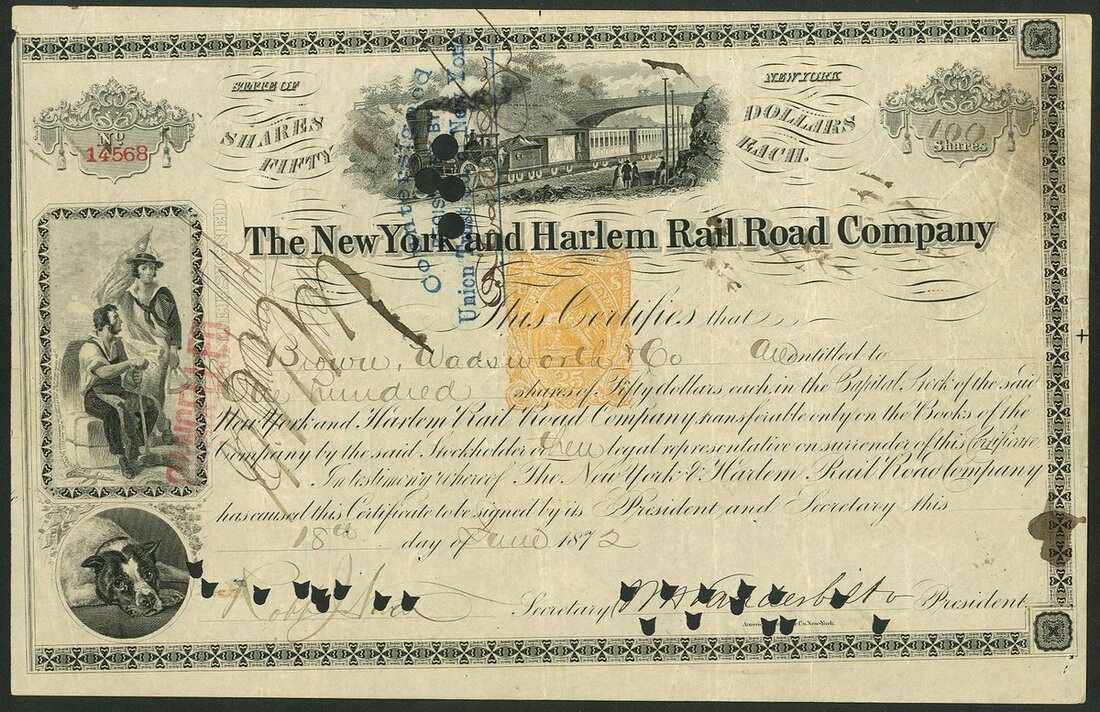 STATE OF
NEW YORK
No
14568
SHARES
FIFTY
DOLLARS
EACH.
100
Shares
Countersigned and
Union Trust New York
The New York and Harlem Rail Road Company
This Certifies that
Brown, Wadsworth & Co are entitled to
One hundred shares of Fifty dollars each, in the Capital Stock of the said
New York and Harlem Rail Road Company, transferable only on the Books of the
Company by the said Stockholder or their legal representative on surrender of this Certificate
In testimony whereof The New York & Harlem Rail Road Company
has caused this Certificate to be signed by its President and Secretary this
18th day of June 1872
25
CANCELLED
Secretary
Wm H Vanderbilt President
Co. New-York.